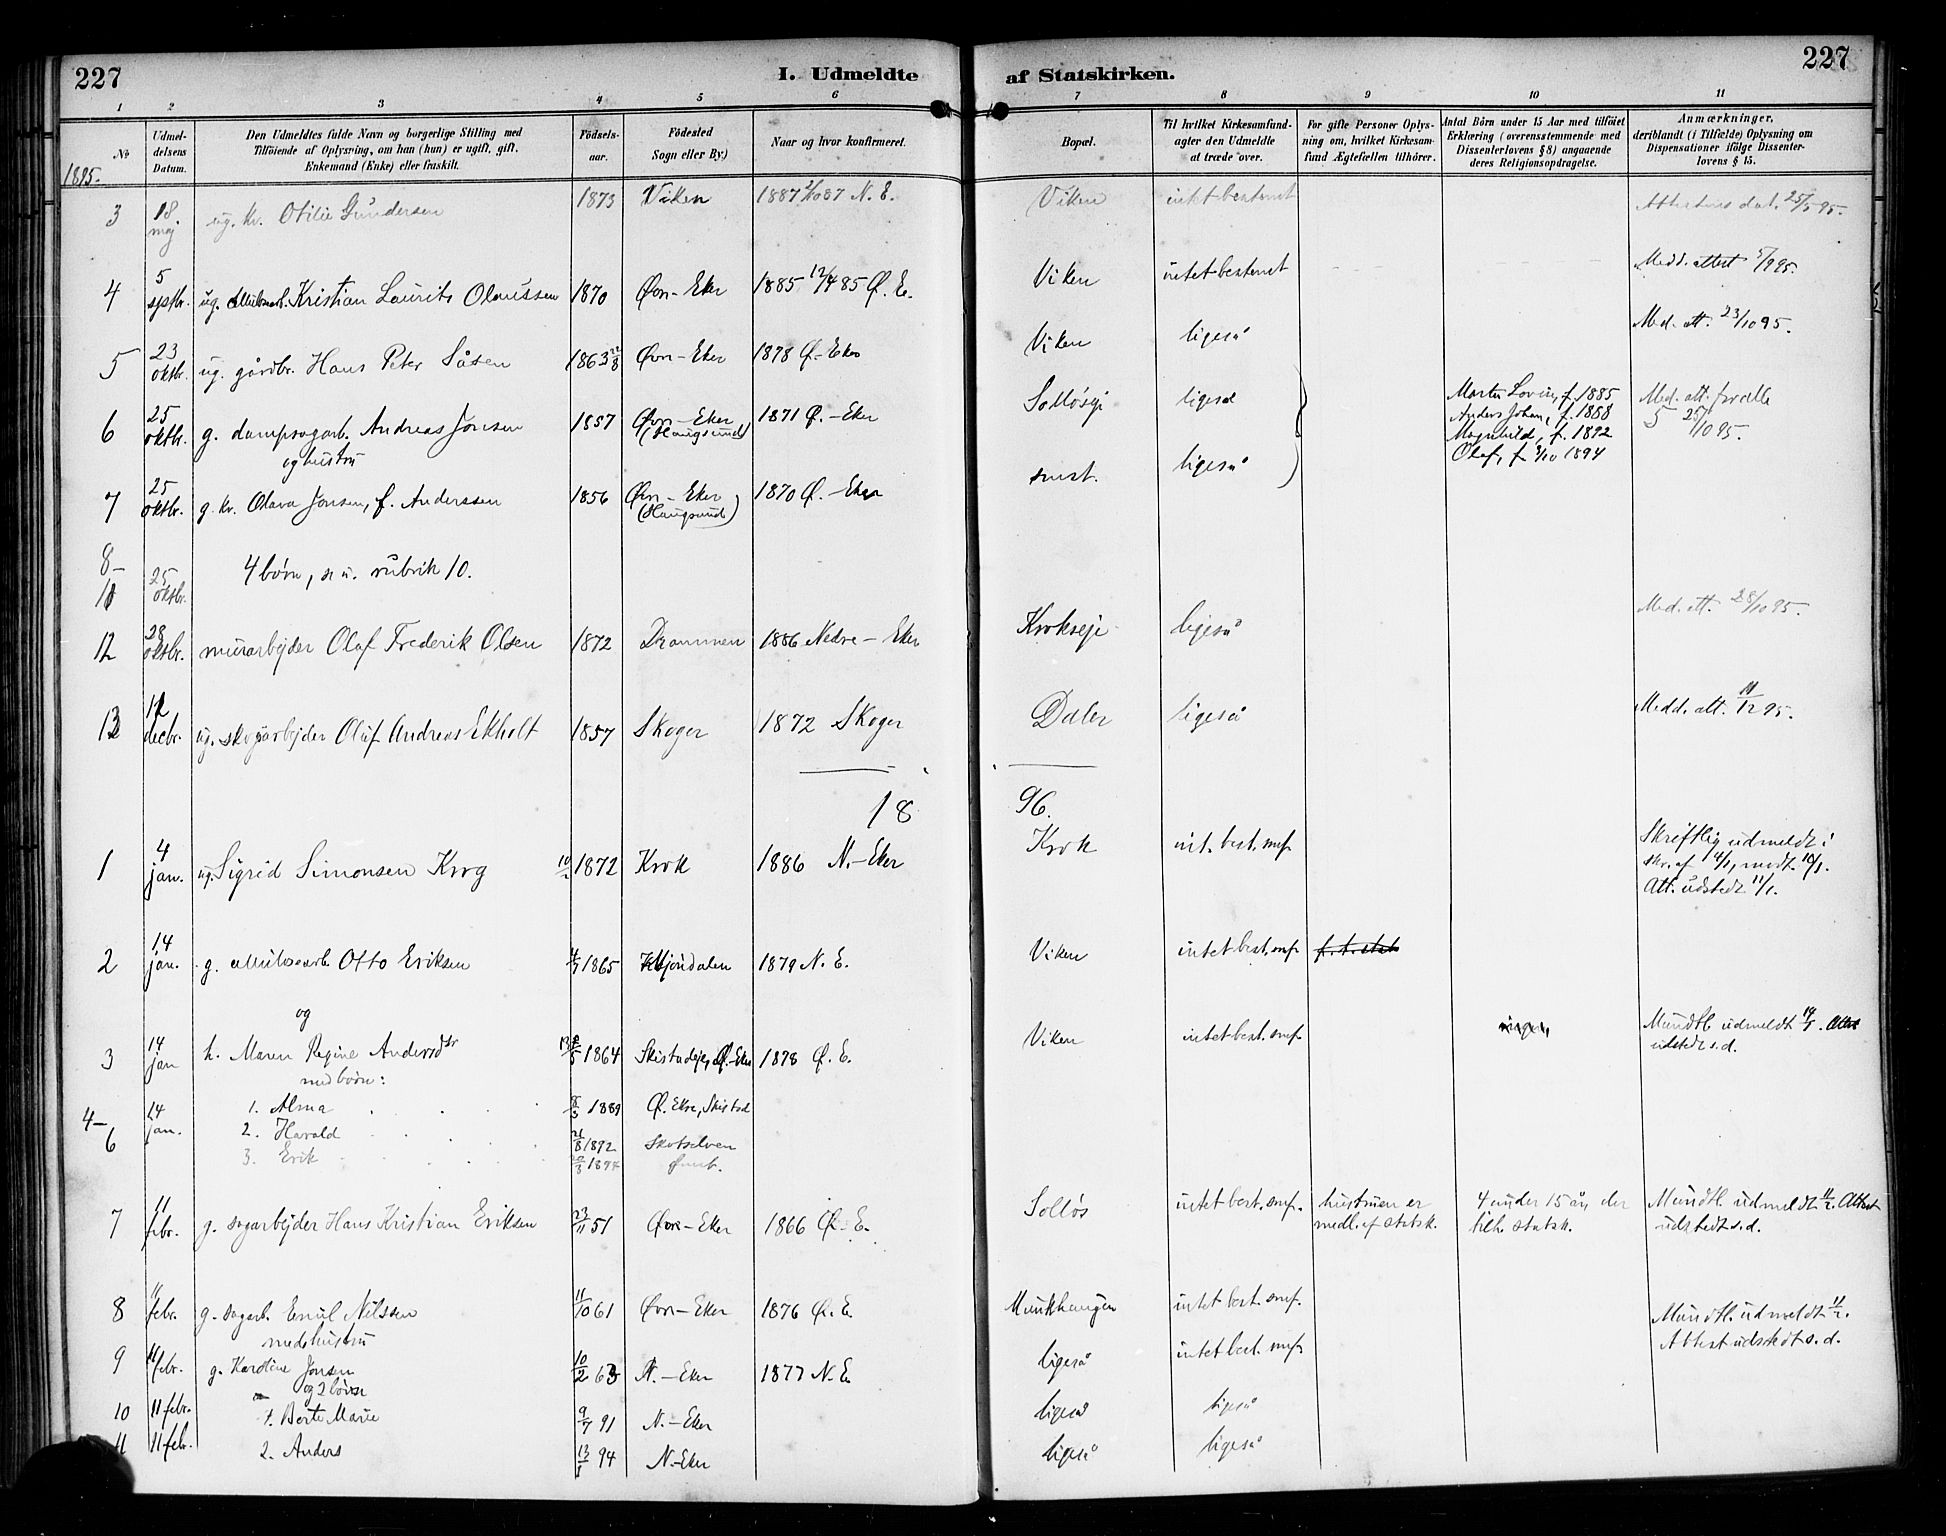 227
I. Udmeldte af Statskirken.
227
1 2 3 4 5 6 7 8 9 10 11
No
Udmeldelsens Datum.
Den Udmeldtes fulde Navn og borgerlige Stilling med
Tilføiende af Oplysning, om han (hun) er ugift, gift,
Enkemand (Enke) eller fraskilt.
Fødselsaar.
Fødested
Sogn eller By.)
Naar og hvor konfirmeret.
Bopæl.
Til hvilket Kirkesamfund
agter den Udmeldte
at træde over.
For gifte Personer Oplysning om, hvilket Kirkesamfund Ægtefællen tilhører.
Antal Børn under 15 Aar med tilføiet
Erklæring (overensstemmende med
Dissenterlovens § 8) angaaende
deres Religionsopdragelse.
Anmærkninger,
deriblandt (i Tilfælde) Oplysning om
Dispensationer ifølge Dissenterlovens § 15.
1895.
3 18 maj ug. kv. Otilie Gundersen 1873 Viken 1887 N. E. Viken intet bestemt 25/5 95.
4 5 sptbr. ug. Kristian Laurits Olaussen 1870 Øvr-Eker 1885 12/4 85 Ø. E. Viken intet bestemt Medd. attest 5/9 95.
5 23 oktbr. ug. gårdbr. Hans Peter Såsen 1863 Øvr-Eker 1878 Ø.-Eker Viken ligeså Med. att. 23/10 95.
6 25 oktbr. g. dampsagarb. Andreas Jonsen 1857 Øvr-Eker (Haugsund) 1871 Ø.-Eker ligeså
og hustru
Anders Johan, f. 1888
Magnhild, f. 1892
Olaf, f. 3/10 1894
Med. att. for alle
5 25/10 95.
7 25 oktbr. g. kv. Olava Jonsen, f. Anderssen 1856 Øvr-Eker (Haugsund) 1870 Ø.-Eker smst. ligeså
8-11 25 oktbr. 4 børn, se u. rubrik 10.
12 28 oktbr. murarbejder Olaf Frederik Olsen 1872 Drammen 1886 Nedre-Eker Krokseje ligeså Med. att. 28/10 95.
13 decbr. ug. skogarbejder Oluf Andreas Ekholt 1857 Skoger 1872 Skoger Daler ligeså Medd. att. 11/12 95.
18 96.
1 4 jan. ug. Sigrid Simonsen Krog 1872 Krok 1886 N.-Eker Krok int. best. smf.
Skriftlig udmeldt i
skr. af 4/1, modt. 10/1.
Att. udstedt 11/1.
2 14 jan. g. Otto Eriksen 1865 Mjøndalen 1879 N. E. Viken intet best. smf.
og
3 14 jan h. Maren Regine Andersd. 1864 Ø.-Eker 1878 Ø. E. Viken intet best. smf. ingen
Mundtl. udmeldt 14/1. Attest
udstedt s.d.
med børn:
4-6 14 jan.
1. Alma 1889 Ø. Eker, Skistad
2. Harald 21/8 1892 Skotselven
3. Erik 1894 smst.
7 11 febr. g. sagarbejder Hans Kristian Eriksen 23/11 51 Øvr-Eker 1866 Ø. E. Solløs intet best. smf.
hustruen er
medl. af statsk.
4 under 15 år, der
tilh. statsk.
Mundtl. udmeldt 11/2. Attest
udstedt s.d.
8 11 febr. g. sagarb. Emil Nilssen 11/10 61 Øvr-Eker 1876 Ø. E. Munkhaugen intet best. smf.
med hustru
Mundtl. udmeldt 11/2.
Attest udstedt s.d.
9 11 febr. g. Karoline Jonsen 10/2 63 N.-Eker 1877 N. E. ligeså intet best. smf.
og 2 børn
10 11 febr. 1. Berte Marie 9/7 91 N.-Eker ligeså ligeså
11 11 febr. 2. Anders 94 N.-Eker ligeså ligeså